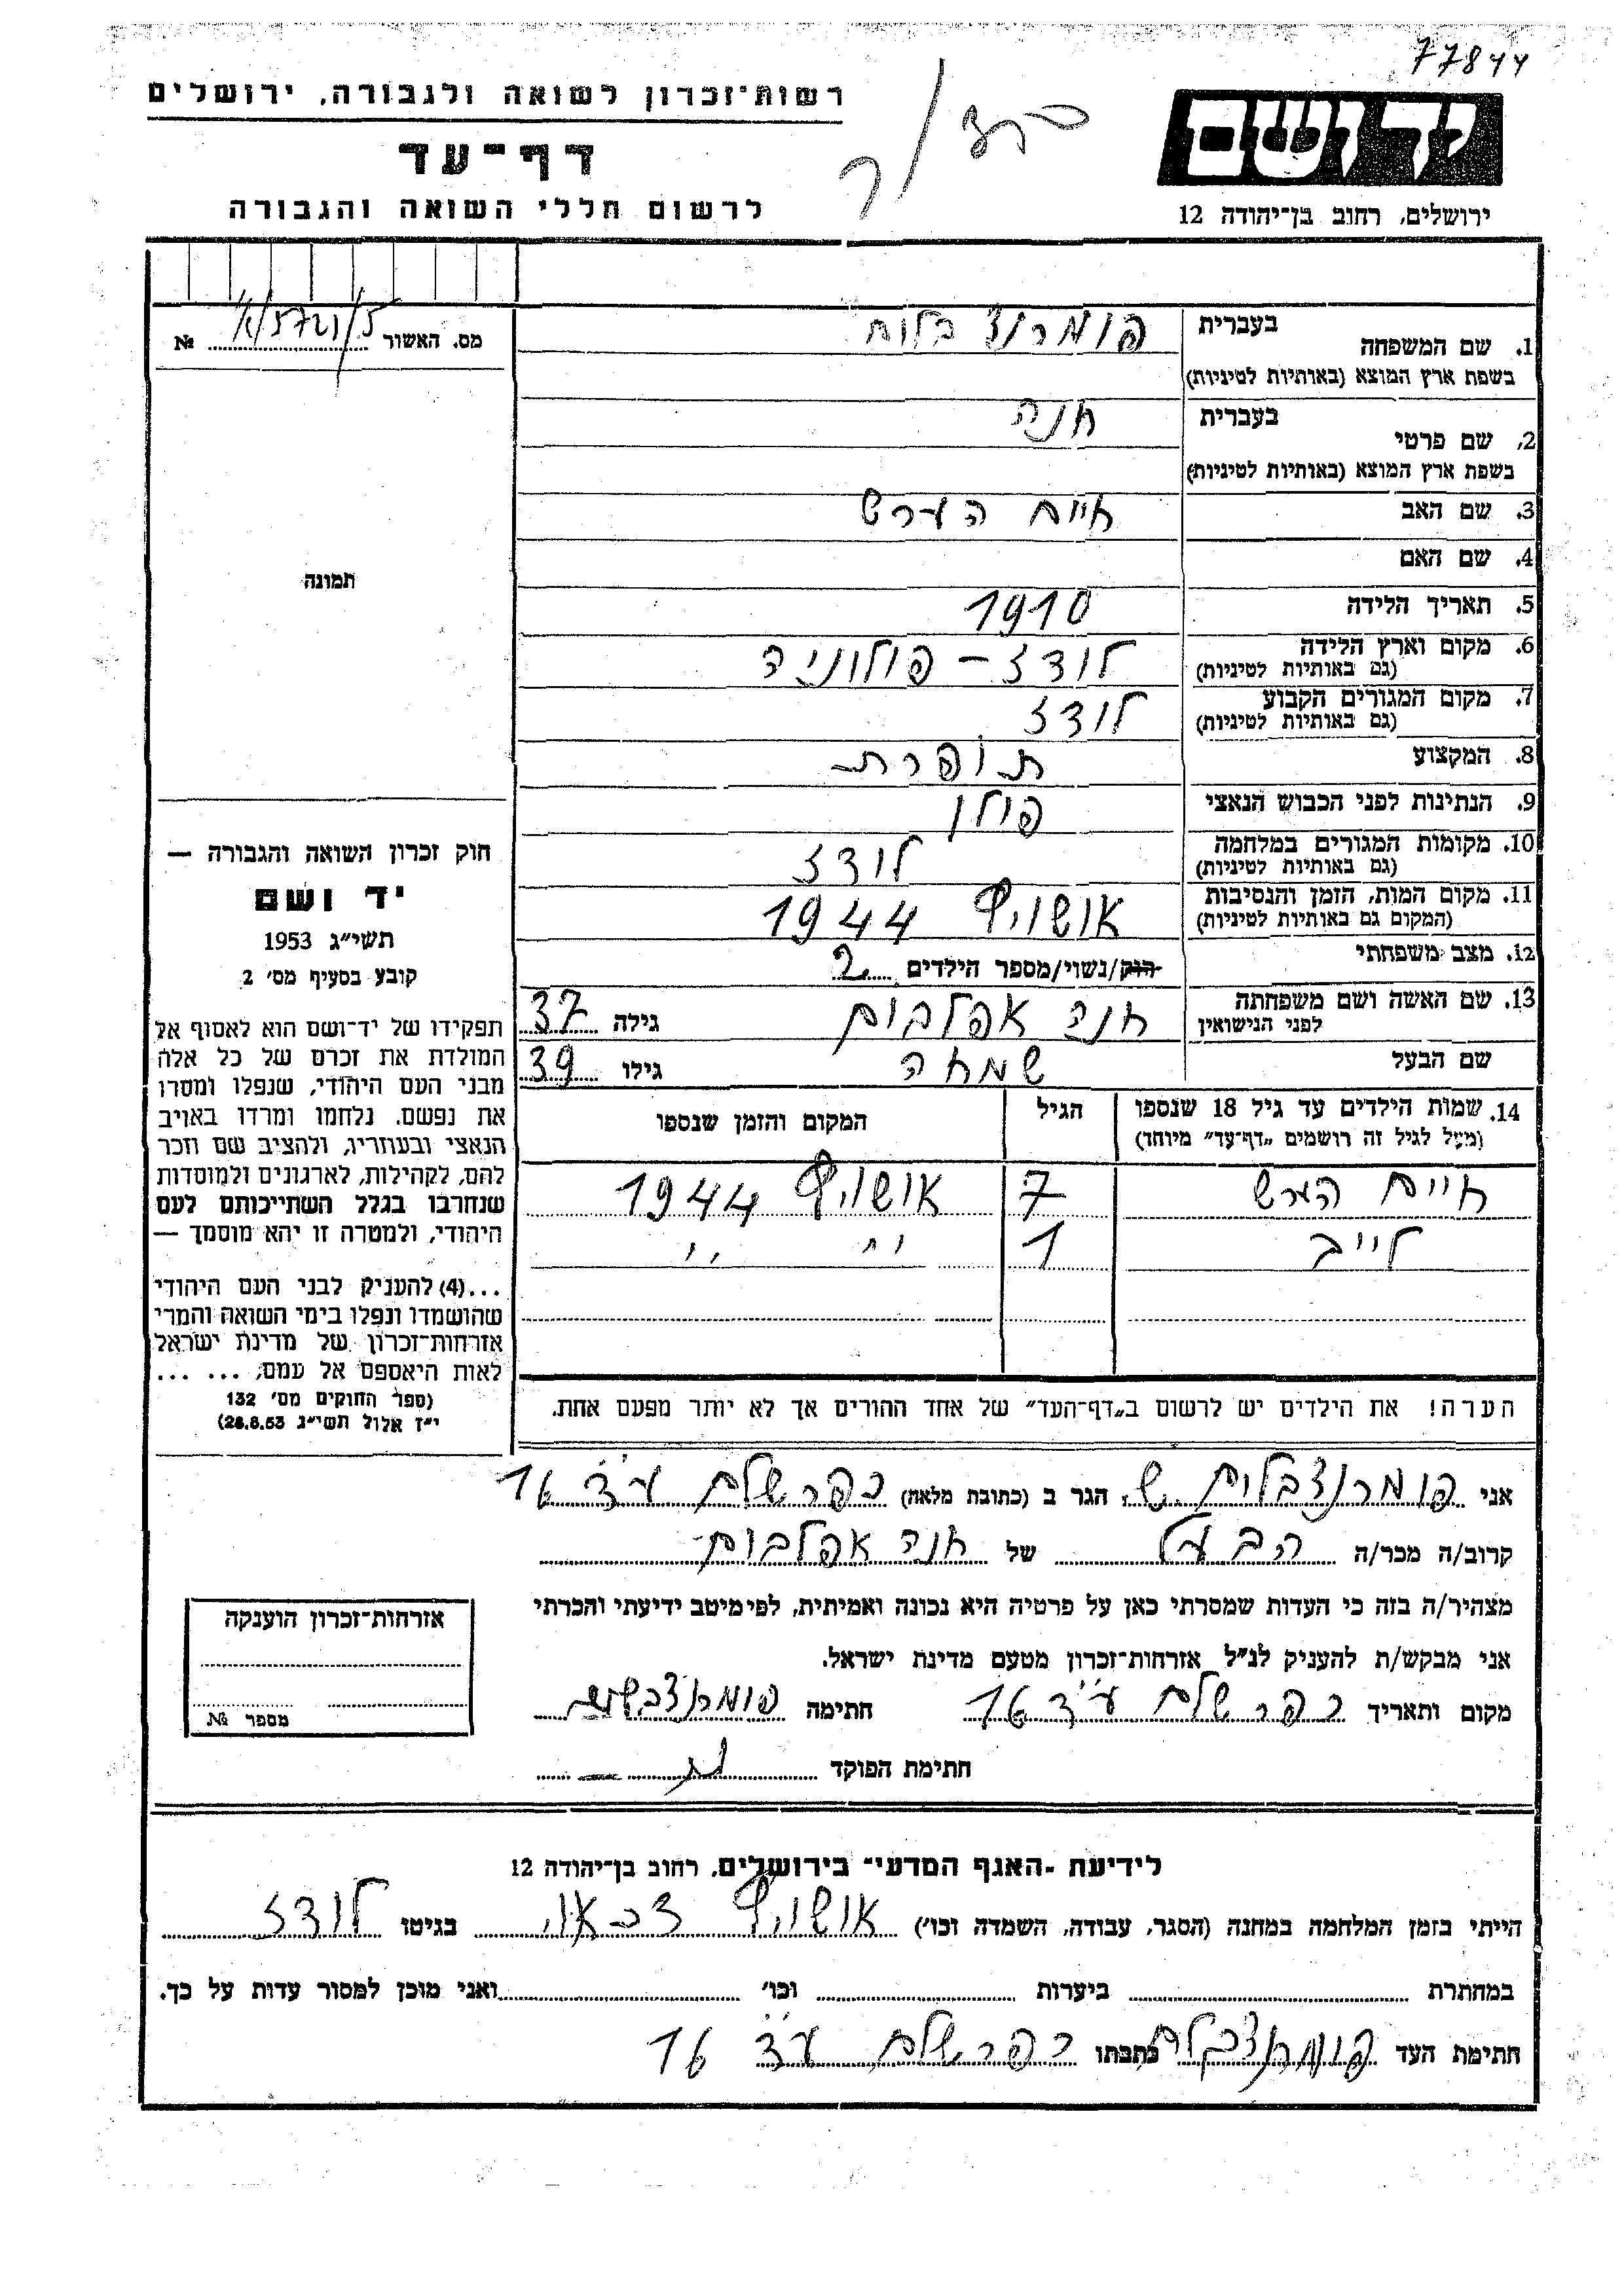 77844
רשות־זכרון לשואה ולגבורה, ירושלים
דף־עד
לרשום חללי השואה והגבורה
יד ושם
ירושלים, רחוב בן־יהודה 12
מס. האשור №
1. שם המשפחה בעברית פומרנצבלום
בשפת ארץ המוצא (באותיות לטיניות)
2. שם פרטי בעברית חנה
בשפת ארץ המוצא (באותיות לטיניות)
3. שם האב חיים הערש
4. שם האם
5. תאריך הלידה 1910
6. מקום וארץ הלידה לודז - פולוניה
(גם באותיות לטיניות)
7. מקום המגורים הקבוע לודז
(גם באותיות לטיניות)
8. המקצוע תופרת
9. הנתינות לפני הכבוש הנאצי פולן
10. מקומות המגורים במלחמה לודז
(גם באותיות לטיניות)
11. מקום המות, הזמן והנסיבות אושויץ 1944
(המקום גם באותיות לטיניות)
12. מצב משפחתי רוק/נשוי/מספר הילדים 2
13. שם האשה ושם משפחתה לפני הנישואין חנה אפלבום גילה 37
שם הבעל שמחה גילו 39
14. שמות הילדים עד גיל 18 שנספו הגיל המקום והזמן שנספו
(מעל לגיל זה רושמים „דף־עד” מיוחד)
חיים הרש 7 אושויץ 1944
לייב 1 " "
הערה! את הילדים יש לרשום ב„דף־העד” של אחד ההורים אך לא יותר מפעם אחת.
תמונה
חוק זכרון השואה והגבורה —
יד ושם
תשי״ג 1953
קובע בסעיף מס׳ 2
תפקידו של יד־ושם הוא לאסוף אל
המולדת את זכרם של כל אלה
מבני העם היהודי, שנפלו ומסרו
את נפשם. נלחמו ומרדו באויב
הנאצי ובעוזריו, ולהציב שם וזכר
להם, לקהילות, לארגונים ולמוסדות
שנחרבו בגלל השתייכותם לעם
היהודי, ולמטרה זו יהא מוסמך —
...(4) להעניק לבני העם היהודי
שהושמדו ונפלו בימי השואה והמרי
אזרחות־זכרון של מדינת ישראל
לאות היאספם אל עמם, ... ...
(ספר החוקים מס׳ 132
י״ז אלול תשי״ג 28.8.53)
אני פומרנצבלום ש. הגר ב (כתובת מלאה) כפר שלם ע״ד 16
קרוב/ה מכר/ה הבעל של חנה אפלבום
מצהיר/ה בזה כי העדות שמסרתי כאן על פרטיה היא נכונה ואמיתית, לפי מיטב ידיעתי והכרתי
אני מבקש/ת להעניק לנ״ל אזרחות־זכרון מטעם מדינת ישראל.
מקום ותאריך כפר שלם ע״ד 16 חתימה פומרנצבלום
חתימת הפוקד
אזרחות־זכרון הוענקה
מספר №
לידיעת ־האגף המדעי־ בירושלים, רחוב בן־יהודה 12
הייתי בזמן המלחמה במחנה (הסגר, עבודה, השמדה וכו׳) אושויץ דכאו בגיטו לודז
במחתרת ביערות וכו׳ ואני מוכן למסור עדות על כך.
חתימת העד פומרנצבלום כתבתו כפר שלם ע״ד 16